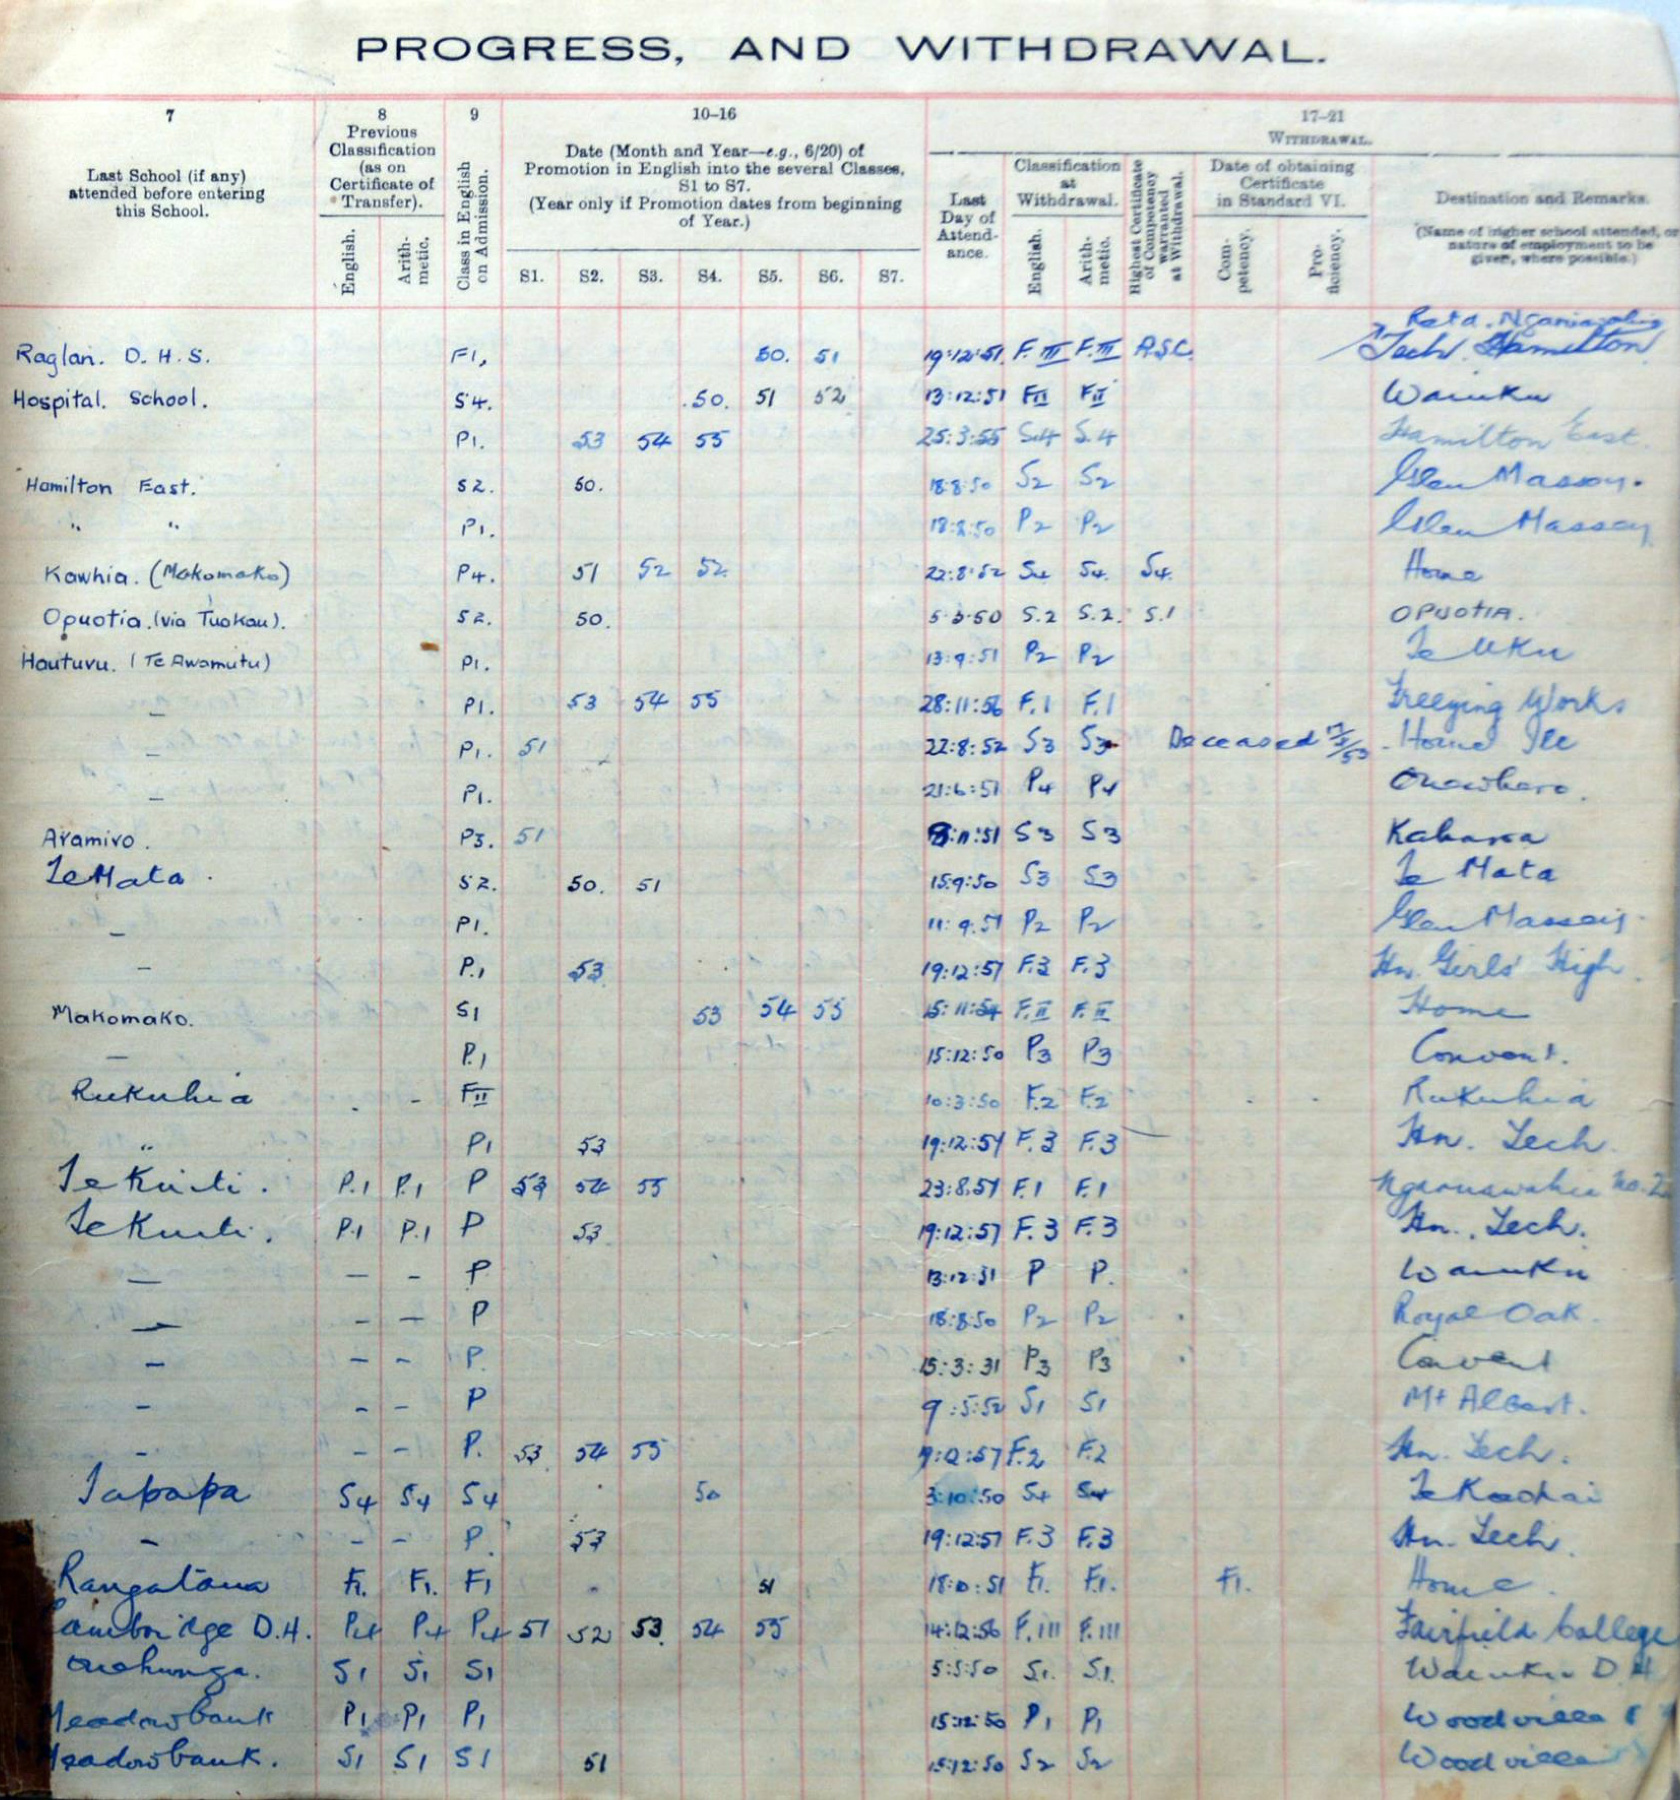 PROGRESS, AND WITHDRAWAL.
7 8 9 10–16 17–21
Last School (if any) attended before entering this School.
Previous Classification (as on Certificate of Transfer).
English. Arithmetic.
Class in English on Admission.
Date (Month and Year—e.g., 6/20) of Promotion in English into the several Classes, S1 to S7.
(Year only if Promotion dates from beginning of Year.)
S1. S2. S3. S4. S5. S6. S7.
WITHDRAWAL.
Last Day of Attendance.
Classification at Withdrawal.
English. Arithmetic.
Highest Certificate of Competency warranted at Withdrawal.
Date of obtaining Certificate in Standard VI.
Competency. Proficiency.
Destination and Remarks.
(Name of higher school attended, or nature of employment to be given, where possible.)
Raglan. D. H. S. F1, 50. 51 19:12:51 F.III F.III A.S.C. Tech. Hamilton
Hospital. School. S4. .50. 51 52 13:12:51 FII FII Waiuku
P1. 53 54 55 25:3:55 S.4 S.4 Hamilton East.
Hamilton East. S2. 50. 18:8:50 S2 S2 Glen Massey.
" " P1. 18:8:50 P2 P2 Glen Massey
Kawhia. (Makomako) P4. 51 52 52 22:8:52 S4 S4. S4. Home
Opuotia. (via Tuakau). S2. 50. 5:5:50 S.2 S.2. S.1 OPUOTIA.
Hauturu. (Te Awamutu) P1. 13:9:51 P2 P2 Te Uku
— P1. 53 54 55 28:11:56 F.1 F.1 Freezing Works
— P1. 51 22:8:52 S3 S3 Deceased Home Ill
— P1. 21:6:51 P4 P4 Onewhero.
Aramiro. P3. 51 8:11:51 S3 S3
Te Mata. S2. 50. 51 15:9:50 S3 S3 Te Mata
— P1. 11:9:51 P2 P2 Glen Massey.
— P.1 53 19:12:57 F.3 F.3 Hn. Girls' High
Makomako. S1 53 54 55 15:11:54 F.II F.II Home
— P.1 15:12:50 P3 P3 Convent.
Rukuhia - FII 10:3:50 F.2 F.2 Rukuhia
" P1 53 19:12:57 F.3 F.3 Hn. Tech.
Te Kuiti. P.1 P.1 P 53 54 55 23:8:57 F.1 F.1 Ngaruawahia No. 2
Te Kuiti. P.1 P.1 P 53 19:12:57 F.3 F.3 Hn. Tech.
— — - P 13:12:51 P P. Waiuku
— — — P 18:8:50 P2 P2 Royal Oak.
— — — P. 15:3:51 P3 P3 Convent
— — — P 9:5:52 S1 S1 Mt Albert.
— — — P. 53 54 55 F.2 F.2 Hn. Tech.
Tapapa S4 S4 S4 50 3:10:50 S4 S4
— — — P. 53 19:12:57 F.3 F.3 Hn. Tech.
Rangataua F1. F1. F1 51 F1. F1. F1. Home.
Cambridge D.H. P4 P4 P4 51 52 53. 54 55 14:12:56 F.III F.III Fairfield College
Onehunga. S1 S1 S1 5:5:50 S1. S1. Waiuku D H
Meadowbank P1 P1 P1 15:12:50 P1 P1 Woodville
Meadowbank. S1 S1 S1 51 15:12:50 S2 S2 Woodville